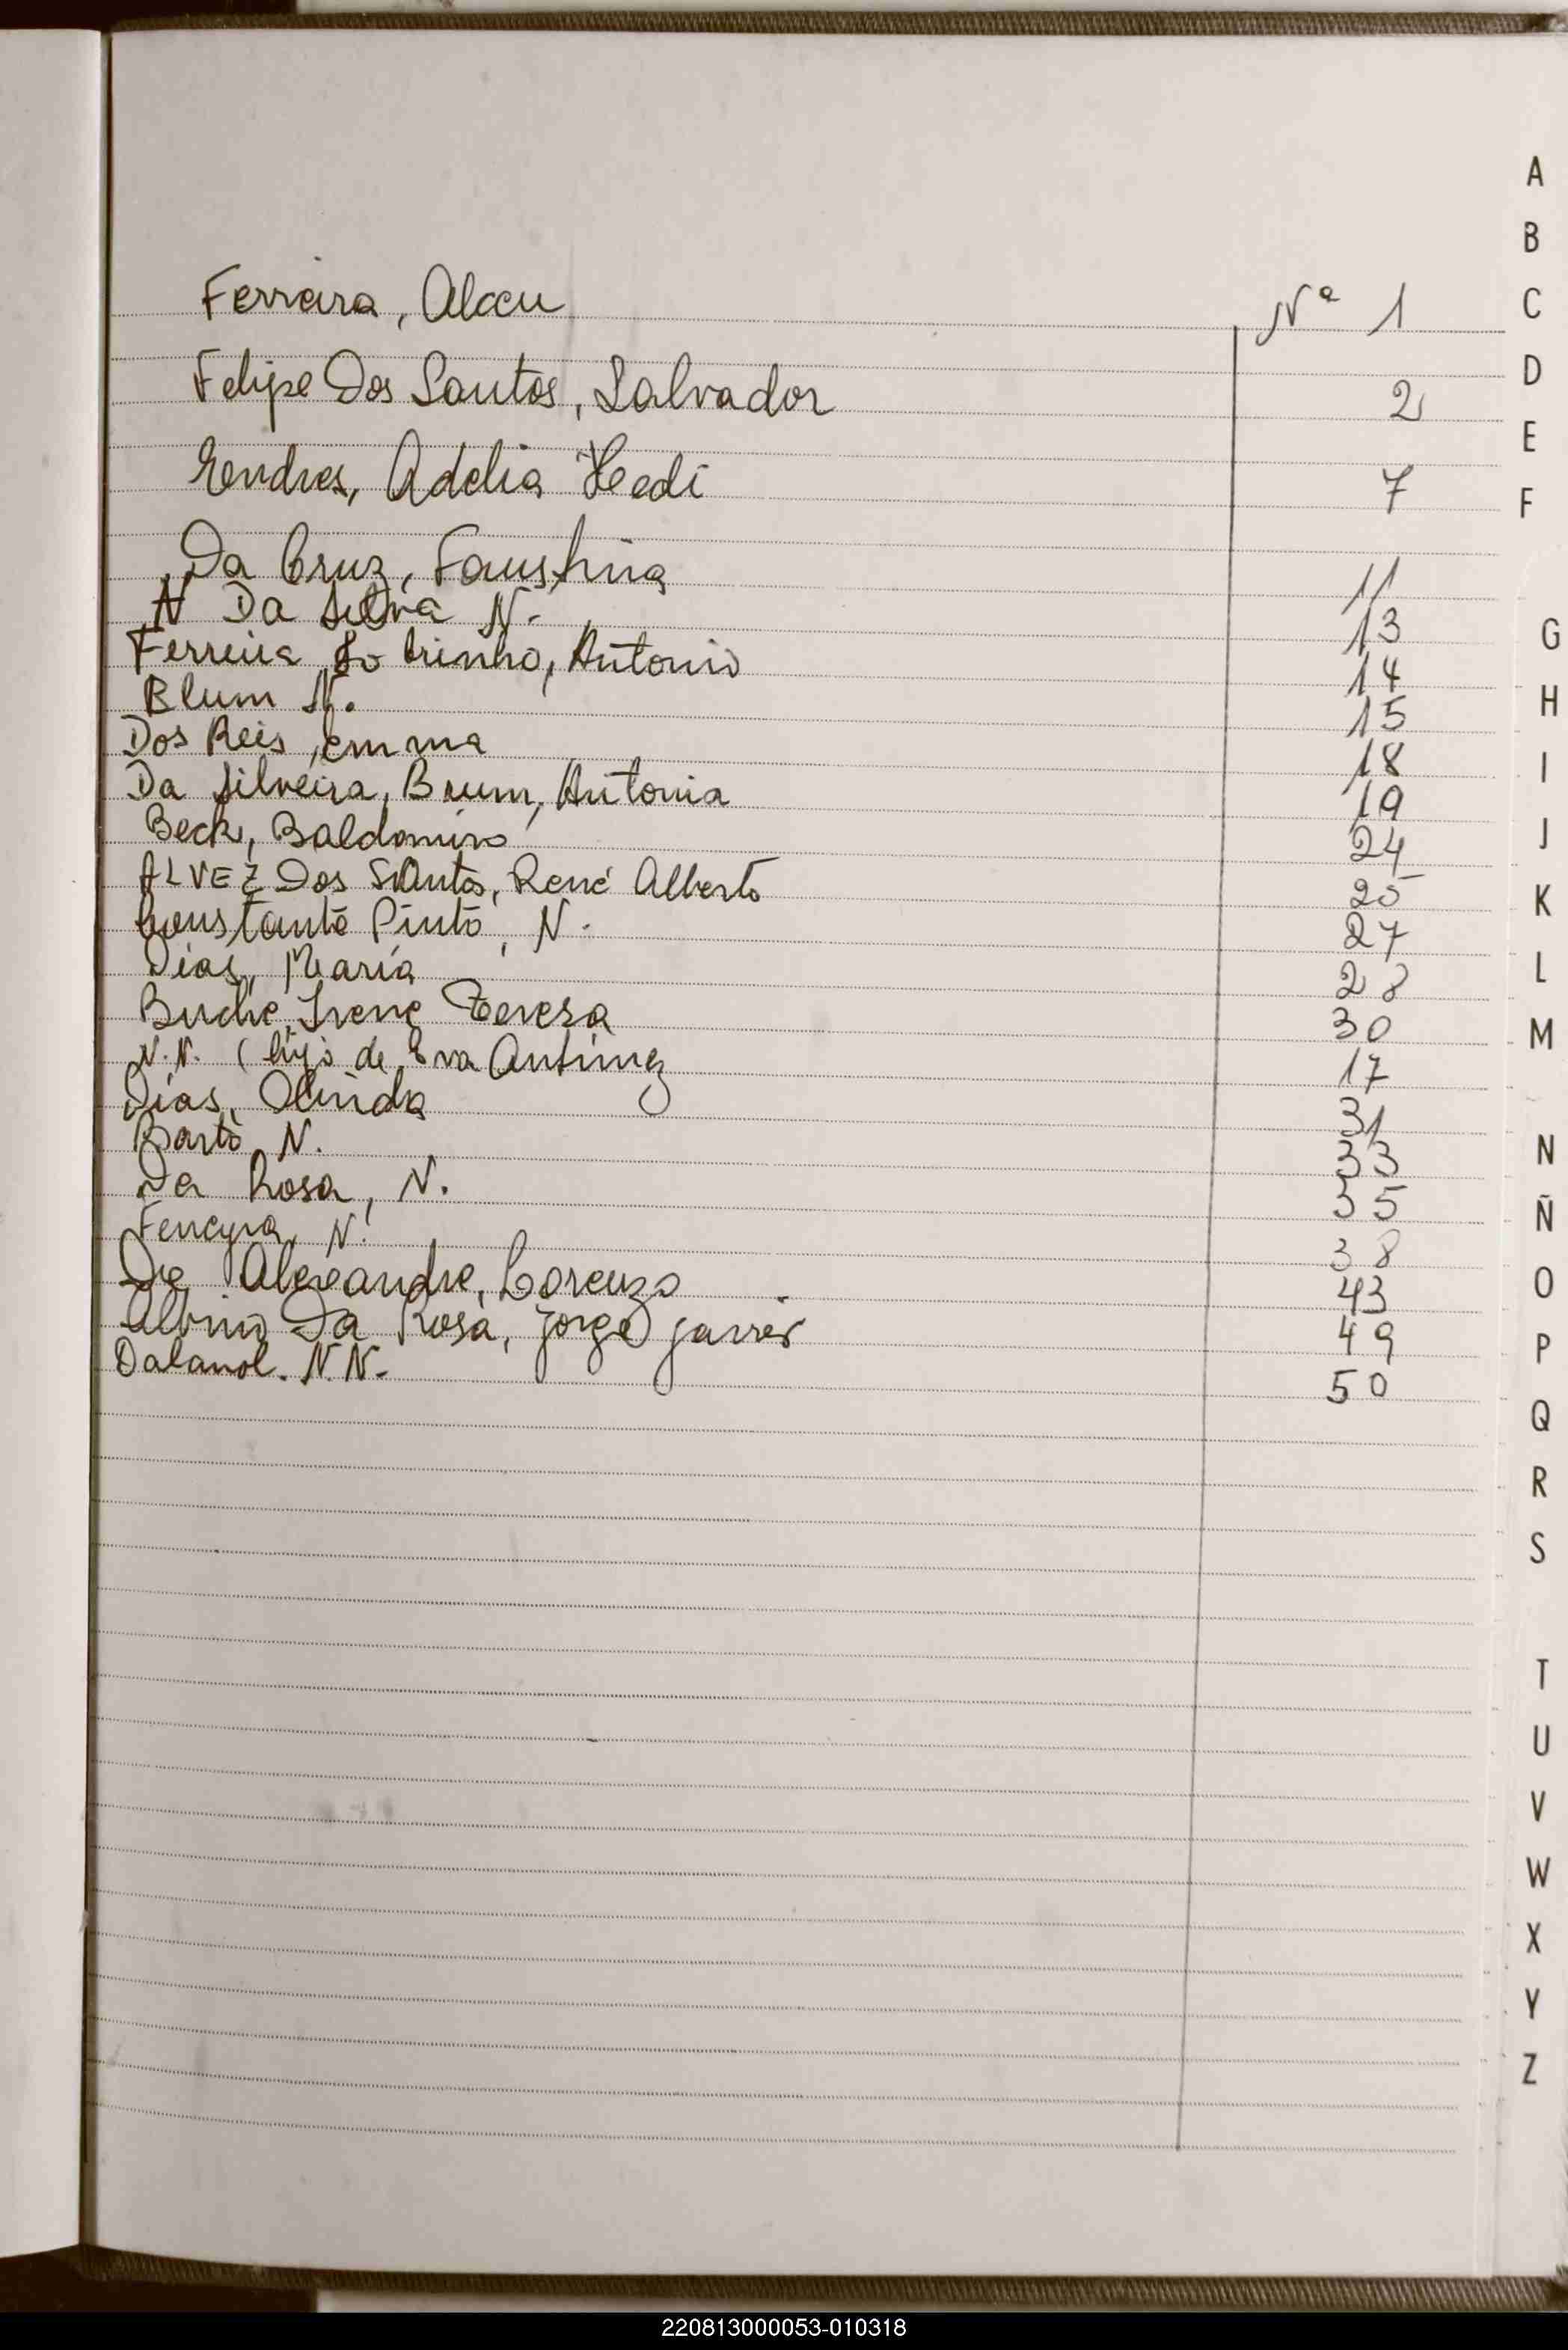 Ferreira, Alceu Nº 1
Felipe Dos Santos, Salvador 2
Endres, Adelia Hedi 7
Da Cruz, Faustina 11
N Da Silva N. 13
Ferreira Sobrinho, Antonio 14
Blum N. 15
Dos Reis, Emma 18
Da Silveira, Brum, Antonia 19
Beck, Baldomiro 24
ALVEZ Dos Santos, René Alberto 25
Constante Pinto, N. 27
Dias, María 28
Buche, Irene Teresa 30
N.N. (hijo de Eva Antunez 17
Días, Olinda 31
Barto N. 33
Da Rosa, N. 35
Ferreyra, N. 38
De Alexandre, Lorenzo 43
Albino Da Rosa, Jorge Javier 49
Dalanol. N.N. 50
A
B
C
D
E
F
G
H
I
J
K
L
M
N
Ñ
O
P
Q
R
S
T
U
V
W
X
Y
Z
220813000053-010318